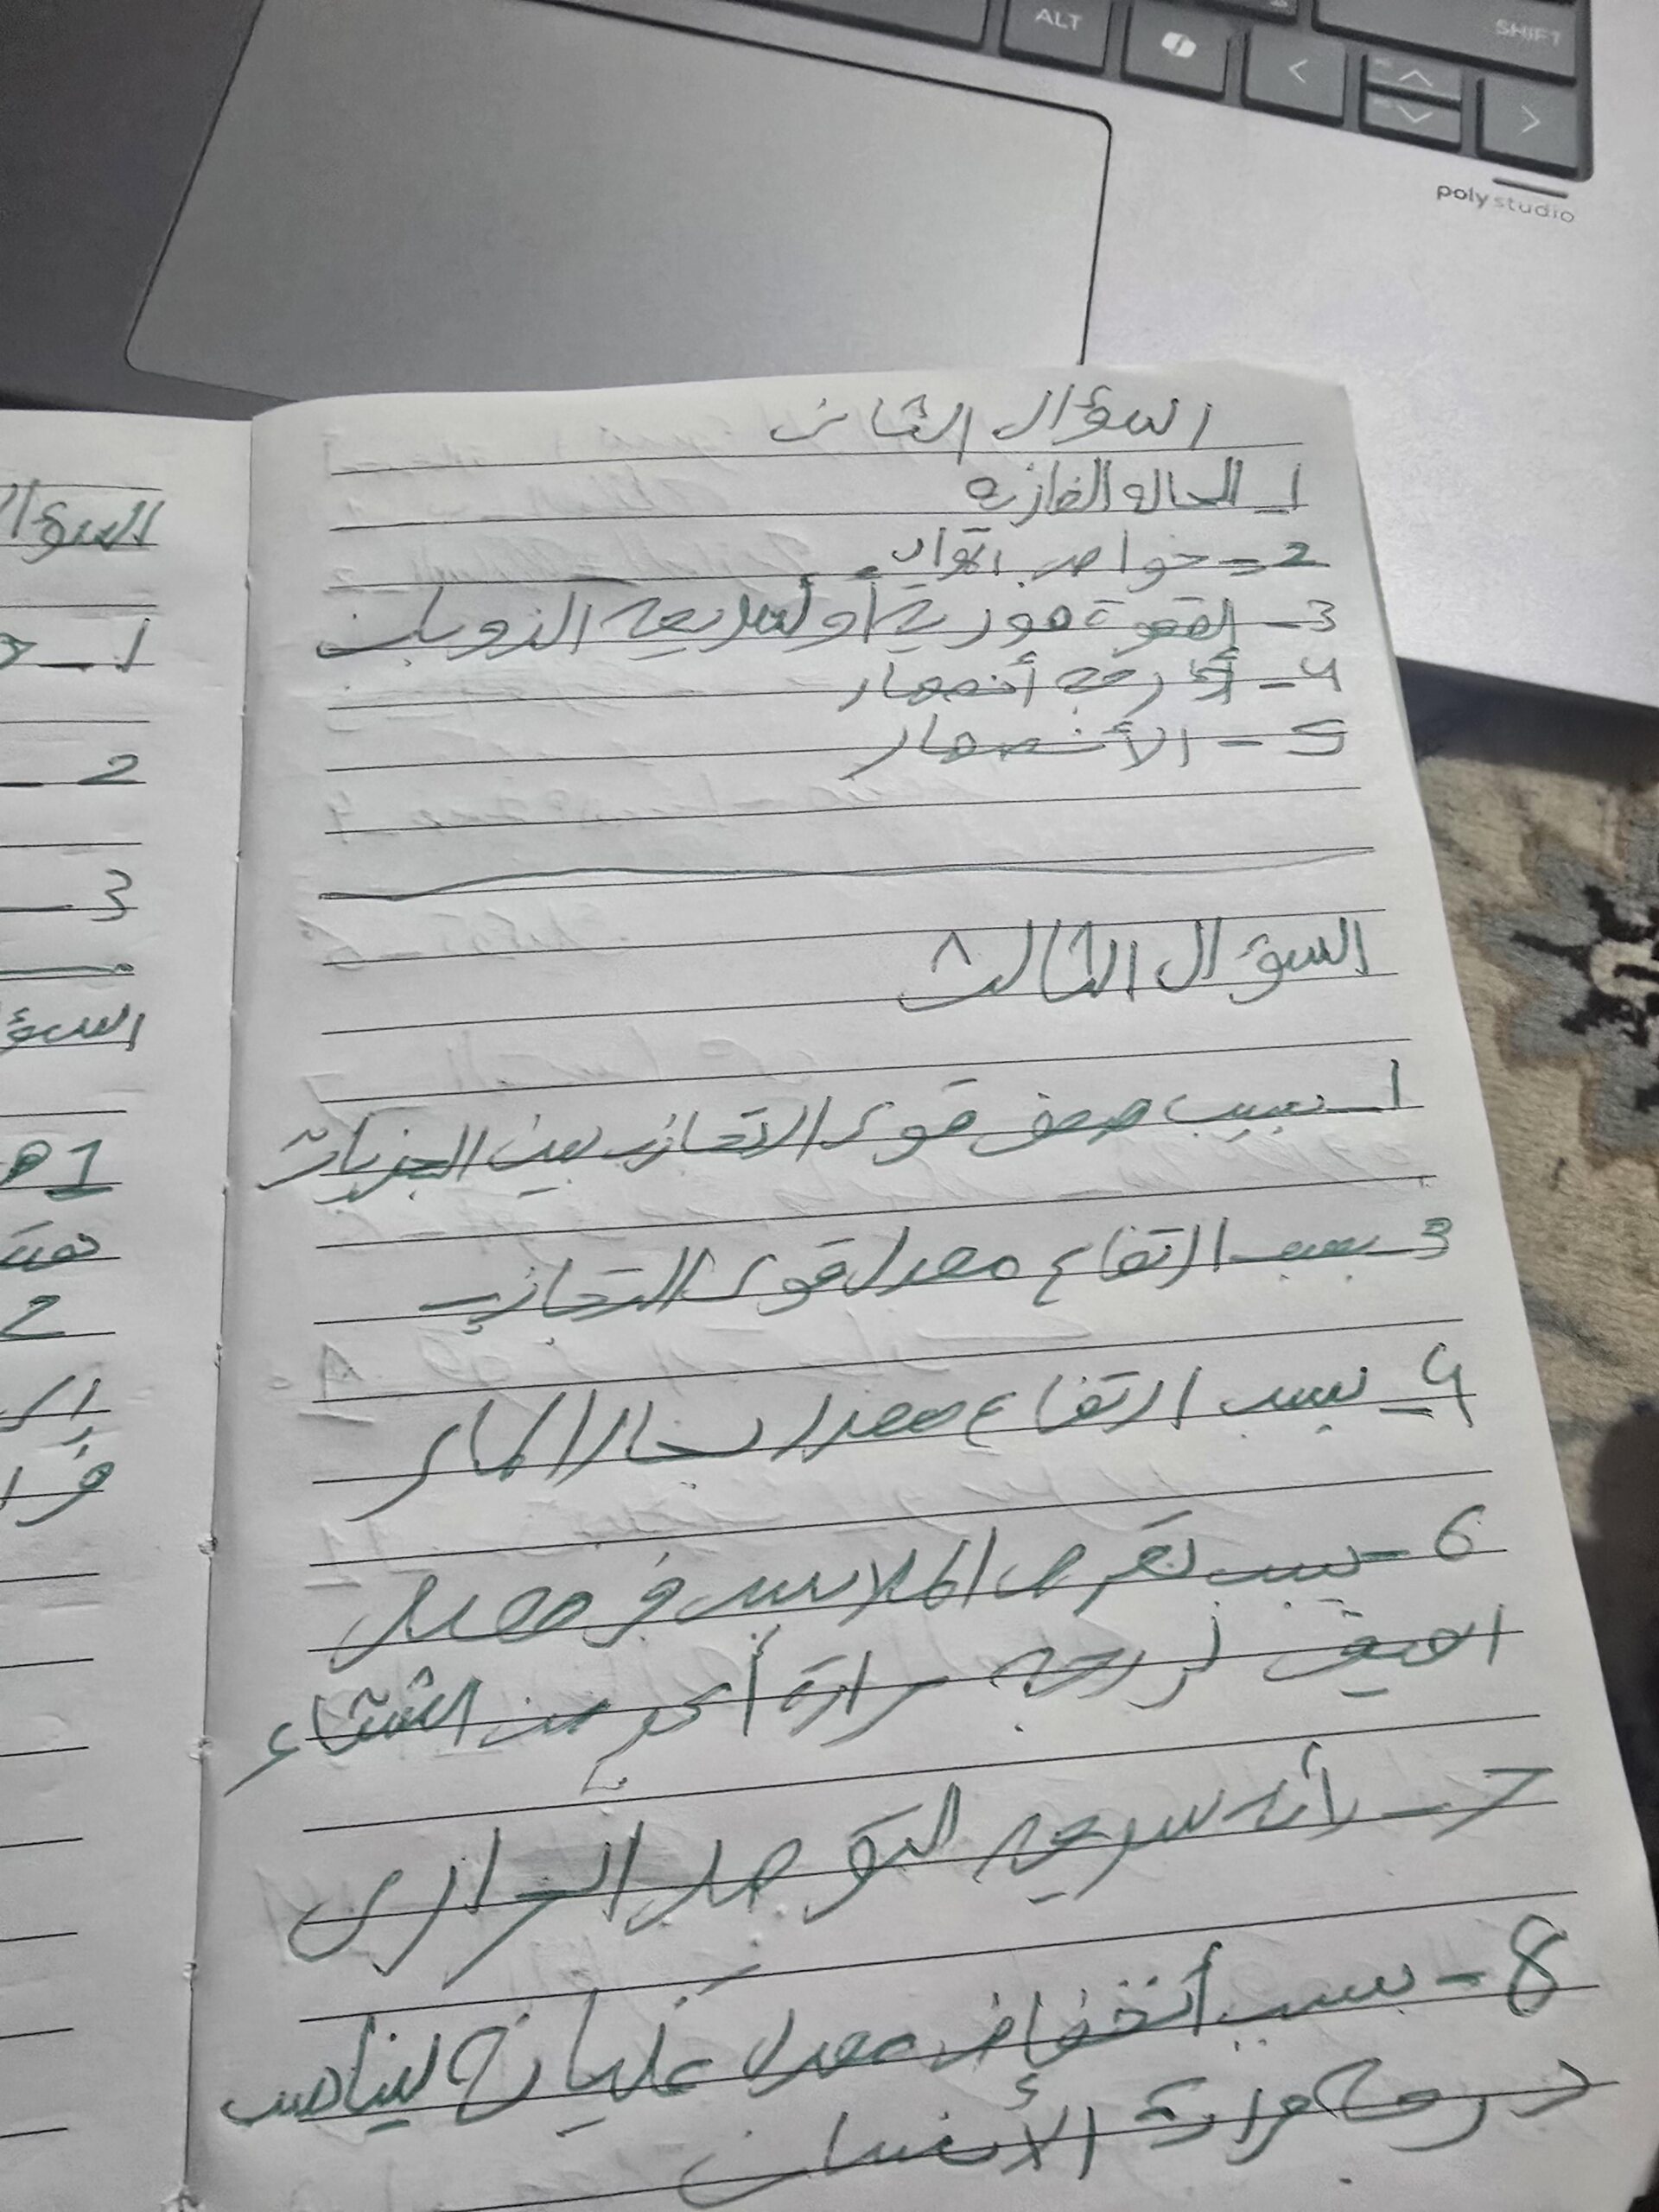 ALT
SHIFT
poly studio
السؤال الثانى
1_ الحاله الغازيه
2_ خواص المواد
3_ القهوة فورية أو لسريعه الذوبان
4_ درجه أنصهار
5_ الأنصهار
السؤال الثالث
1_ بسبب ضعف قوى التجاذب بين الجزيئات
3_ بسبب ارتفاع معدل قوى التجاذب
4_ بسبب ارتفاع معدل بخار الماء
6_ بسبب تعرض الملابس فى فصل
الصيف لدرجه حرارة أكبر من الشتاء
7_ لأنه سريعه التوصل الحرارى
8_ بسبب أنخفاض معدل غليانه ليناسب
درجه حرارة الأنسان
السؤا
1_
2_
3_
السؤ
1
2